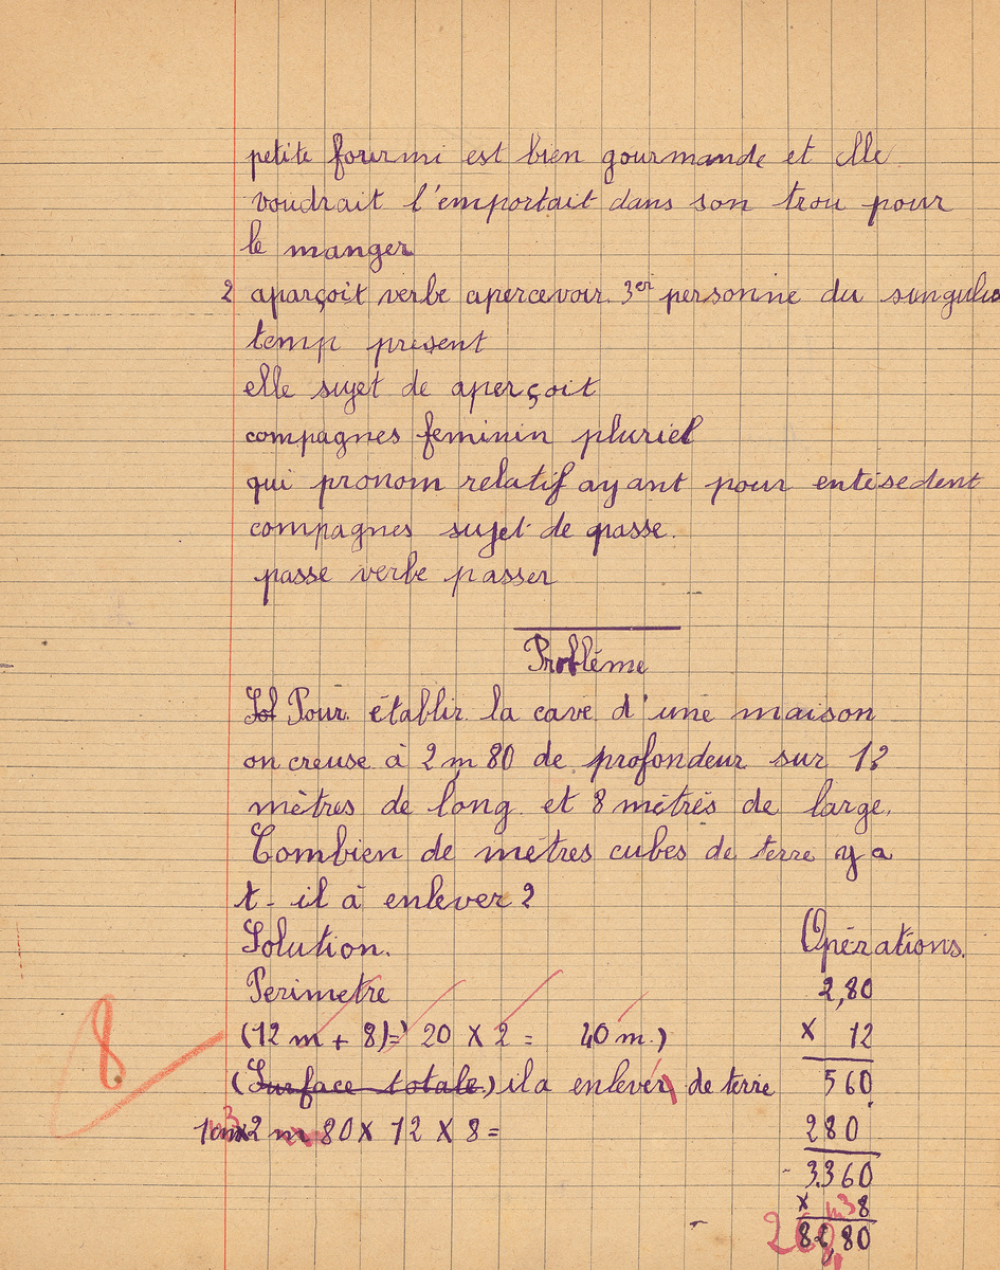 petite fourmi est bien gourmande et elle
voudrait l'emportait dans son trou pour
le manger
2 aparçoit verbe apercevoir 3er personne du singulie
temp présent
elle sujet de aperçoit
compagnes feminin pluriel
qui pronom relatif ayant pour entésedent
compagnes sujet de passe.
passe verbe passer
Problème
Sol Pour établir la cave d'une maison
on creuse à 2 m 80 de profondeur sur 12
mètres de long et 8 mètres de large.
Combien de mètres cubes de terre y a
t-il à enlever ?
Solution. Opérations.
Perimetre 2,80
(12 m + 8)= 20 X 2 = 40 m.) X 12
(Surface totale.) il a enlever de terre 560
8
2 m 80 X 12 X 8 = 280
3360
X 8
m3
80